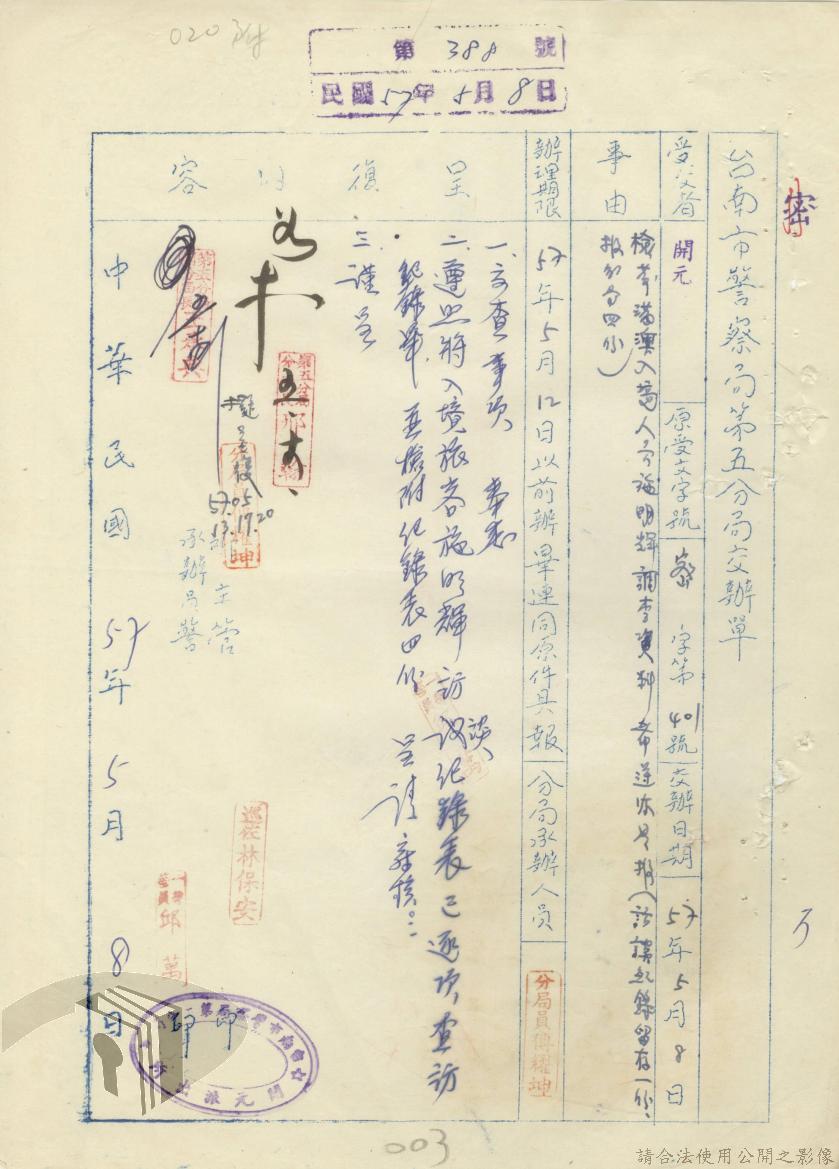 密
020
第 388 號
民國 57年 5月 8日
台南市警察局第五分局交辦單
受文者
開元
原受文字號
密 字第 401 號
交辦日期
57年5月8日
事由
檢奉港澳入境人士施明輝調查資料希逐次見報(訪談紀錄留存一份、
報分局四份)
辦理期限
57年5月12日以前辦畢連同原件具報
分局承辦人員
分局員傅耀坤
呈復內容
一、交查事項奉悉
二、遵照將入境旅客施明輝訪談紀錄表已逐項查訪
紀錄畢、並檢附紀錄表四份 呈請 審核。
三、謹呈
主管
承辦員警
巡佐林保安
邱萬
57.05
13.17.20
中華民國 57年 5月 8日
開元派出
003
請合法使用公開之影像